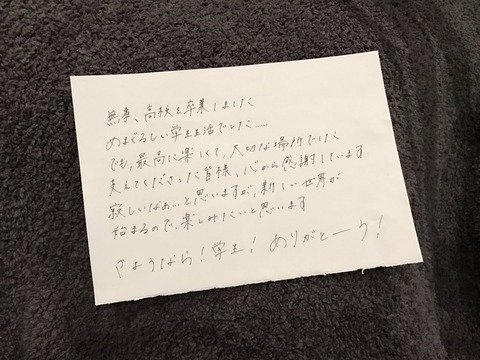 無事、高校を卒業しました
めまぐるしい学生生活でした.....
でも、最高に楽しくて、大切な場所でした
支えてくださった皆様、心から感謝しています
寂しいなぁ...と思いますが、新しい世界が
始まるので、楽しみたいと思います
さようなら!学生!ありがとーう!